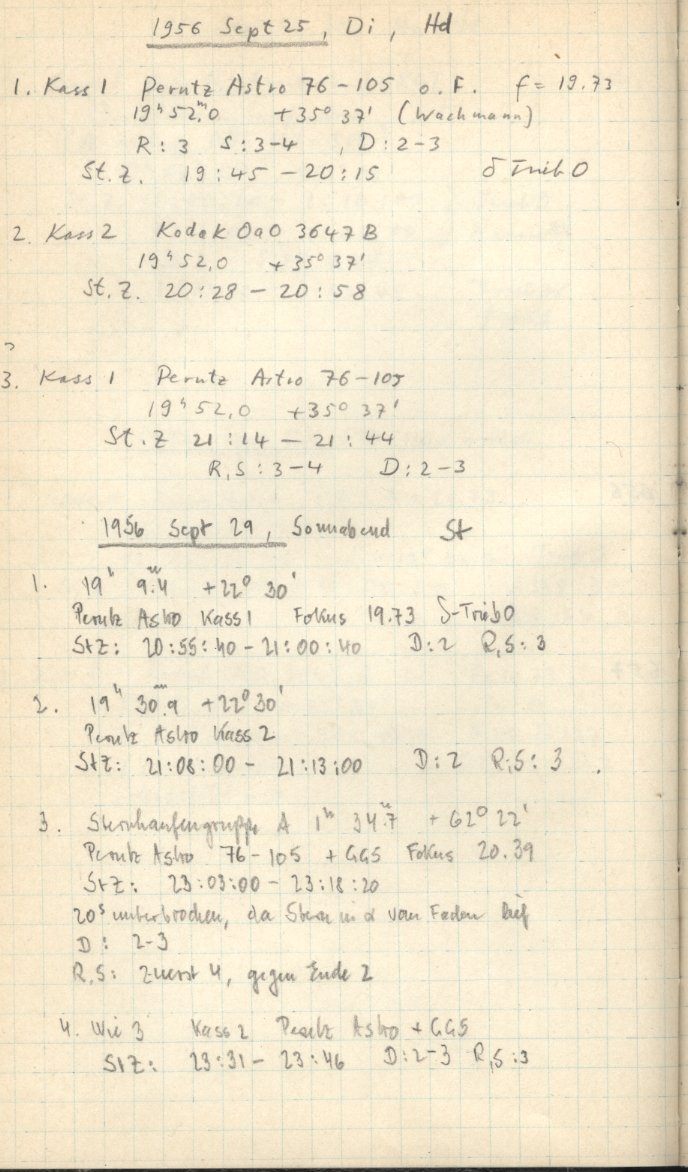 1956 Sept 25, Di, Hd
1. Kass 1 Perutz Astro 76-105 o.F. f= 19.73
19ʰ 52ᵐ,0 +35° 37' (Wachmann)
R: 3 S: 3-4, D: 2-3
St.Z. 19:45 - 20:15 δ Trib 0
2. Kass 2 Kodak OaO 3647 B
19ʰ 52,0 +35° 37'
St.Z. 20:28 - 20:58
?
3. Kass 1 Perutz Astro 76-105
19ʰ 52,0 +35° 37'
St.Z 21:14 - 21:44
R,S: 3-4 D: 2-3
1956 Sept 29, Sonnabend St
1. 19ʰ 9ᵐ.4 +22° 30'
Perutz Astro Kass 1 Fokus 19.73 δ-Trib 0
StZ: 20:55:40 - 21:00:40 D: 2 R,S: 3
2. 19ʰ 30ᵐ.9 +22° 30'
Perutz Astro Kass 2
StZ: 21:08:00 - 21:13:00 D: 2 R,S: 3
3. Sternhaufengruppe A 1ʰ 34ᵐ.7 + 62° 22'
Perutz Astro 76-105 + GG5 Fokus 20.39
StZ: 23:03:00 - 23:18:20
20ˢ unterbrochen, da Stern in α vom Faden lief
D: 2-3
R,S: zuerst 4, gegen Ende 2
4. Wie 3 Kass 2 Perutz Astro + GG5
StZ: 23:31 - 23:46 D: 2-3 R,S: 3